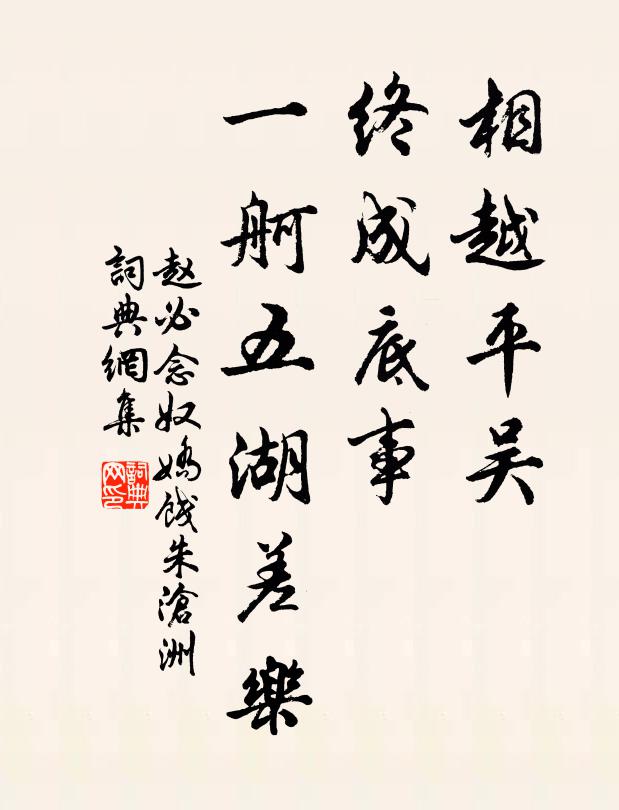 相越平吴
终成底事
一舸五湖差樂
赵必念奴嬌餞朱滄洲
詞典網集
詞典網印